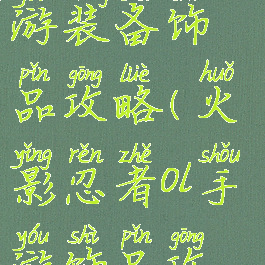 游装备饰
pǐn gōng lüè huǒ
品攻略(火
yǐng rěn zhě shǒu
影忍者ol手
yóu shì pǐn gōng